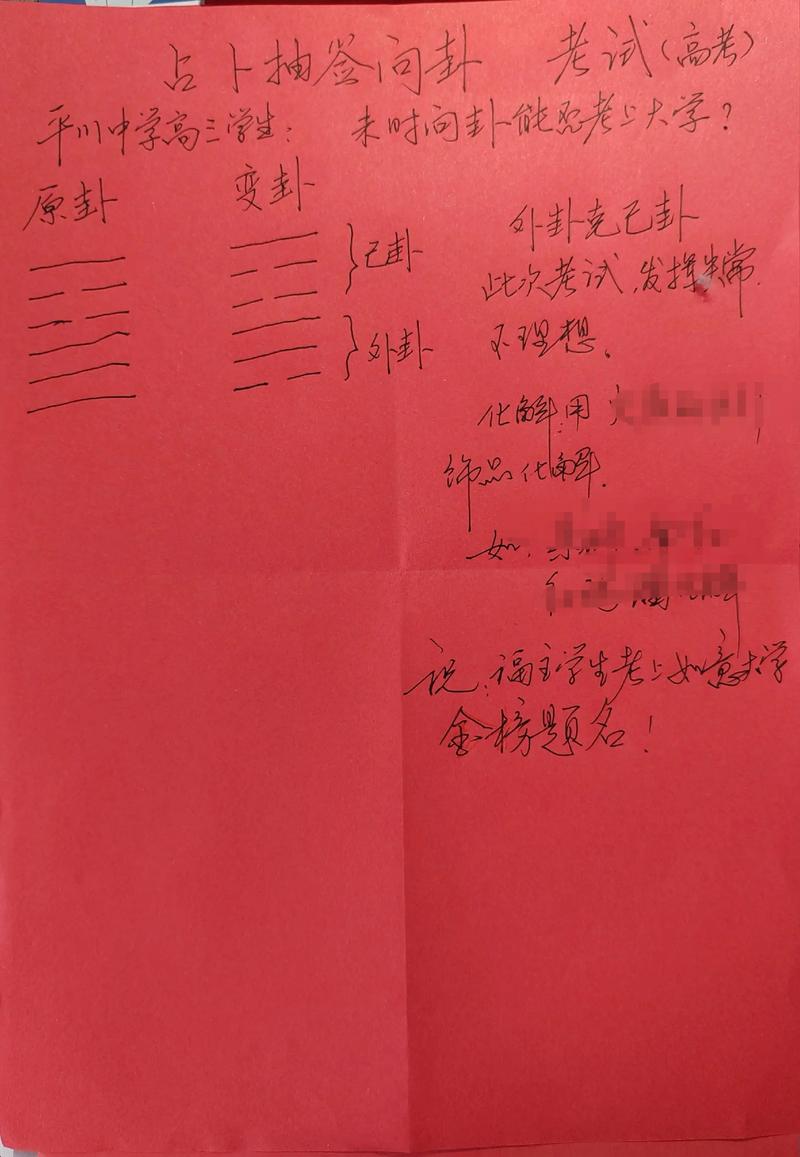 占卜抽签问卦 考试(高考)
平川中学高三学生: 未时问卦能否考上大学?
原卦 变卦
}己卦
}外卦
外卦克己卦
此次考试,发挥失常.
不理想。
化解:用
饰品化解.
如:
祝:福主学生考上如意大学
金榜题名!